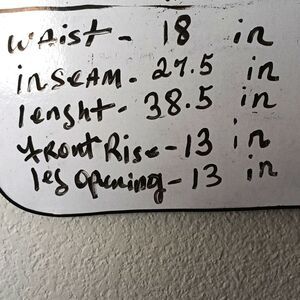 waist - 18 in
inseam - 27.5 in
lenght - 38.5 in
front Rise - 13 in
leg opening - 13 in